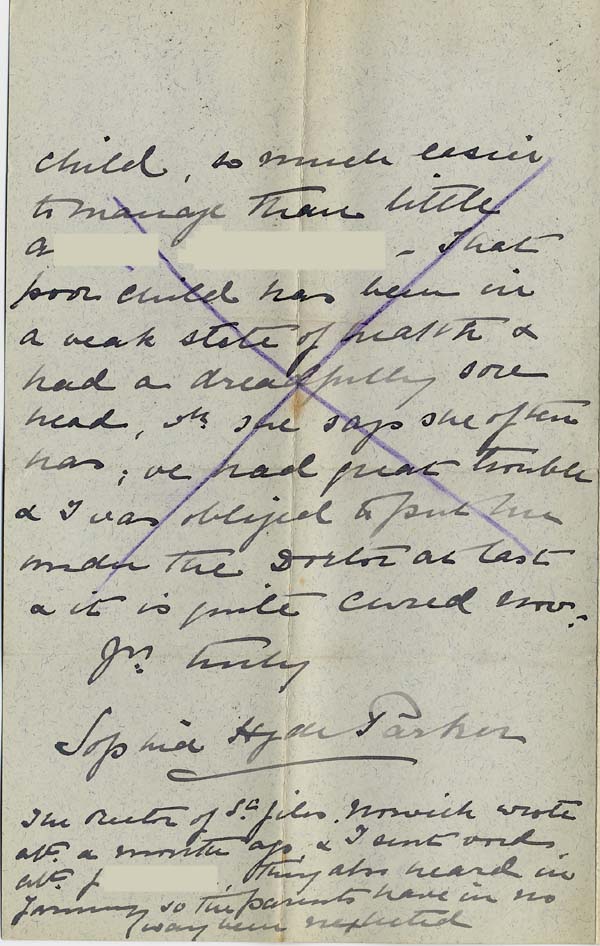 child, so much easier
to manage than little
a
- That
poor child has been in
a weak state of health &
had a dreadfully sore
head, wh. she says she often
has; we had great trouble
& I was obliged to put her
under the Doctor at last
& it is quite cured now.
Yrs truly
Sophia Hyde Parker
The Rector of St. Giles. Norwich wrote
abt. a month ago & I sent word
abt. , they also heard in
January so the parents have in no
way been neglected